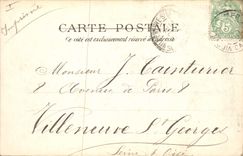 Imprimé
CARTE POSTALE
Ce côté est exclusivement réservé à l'adresse
5
Monsieur J. Cainturier
8 Avenue de Paris 8
Villeneuve St Georges
Seine & Oise